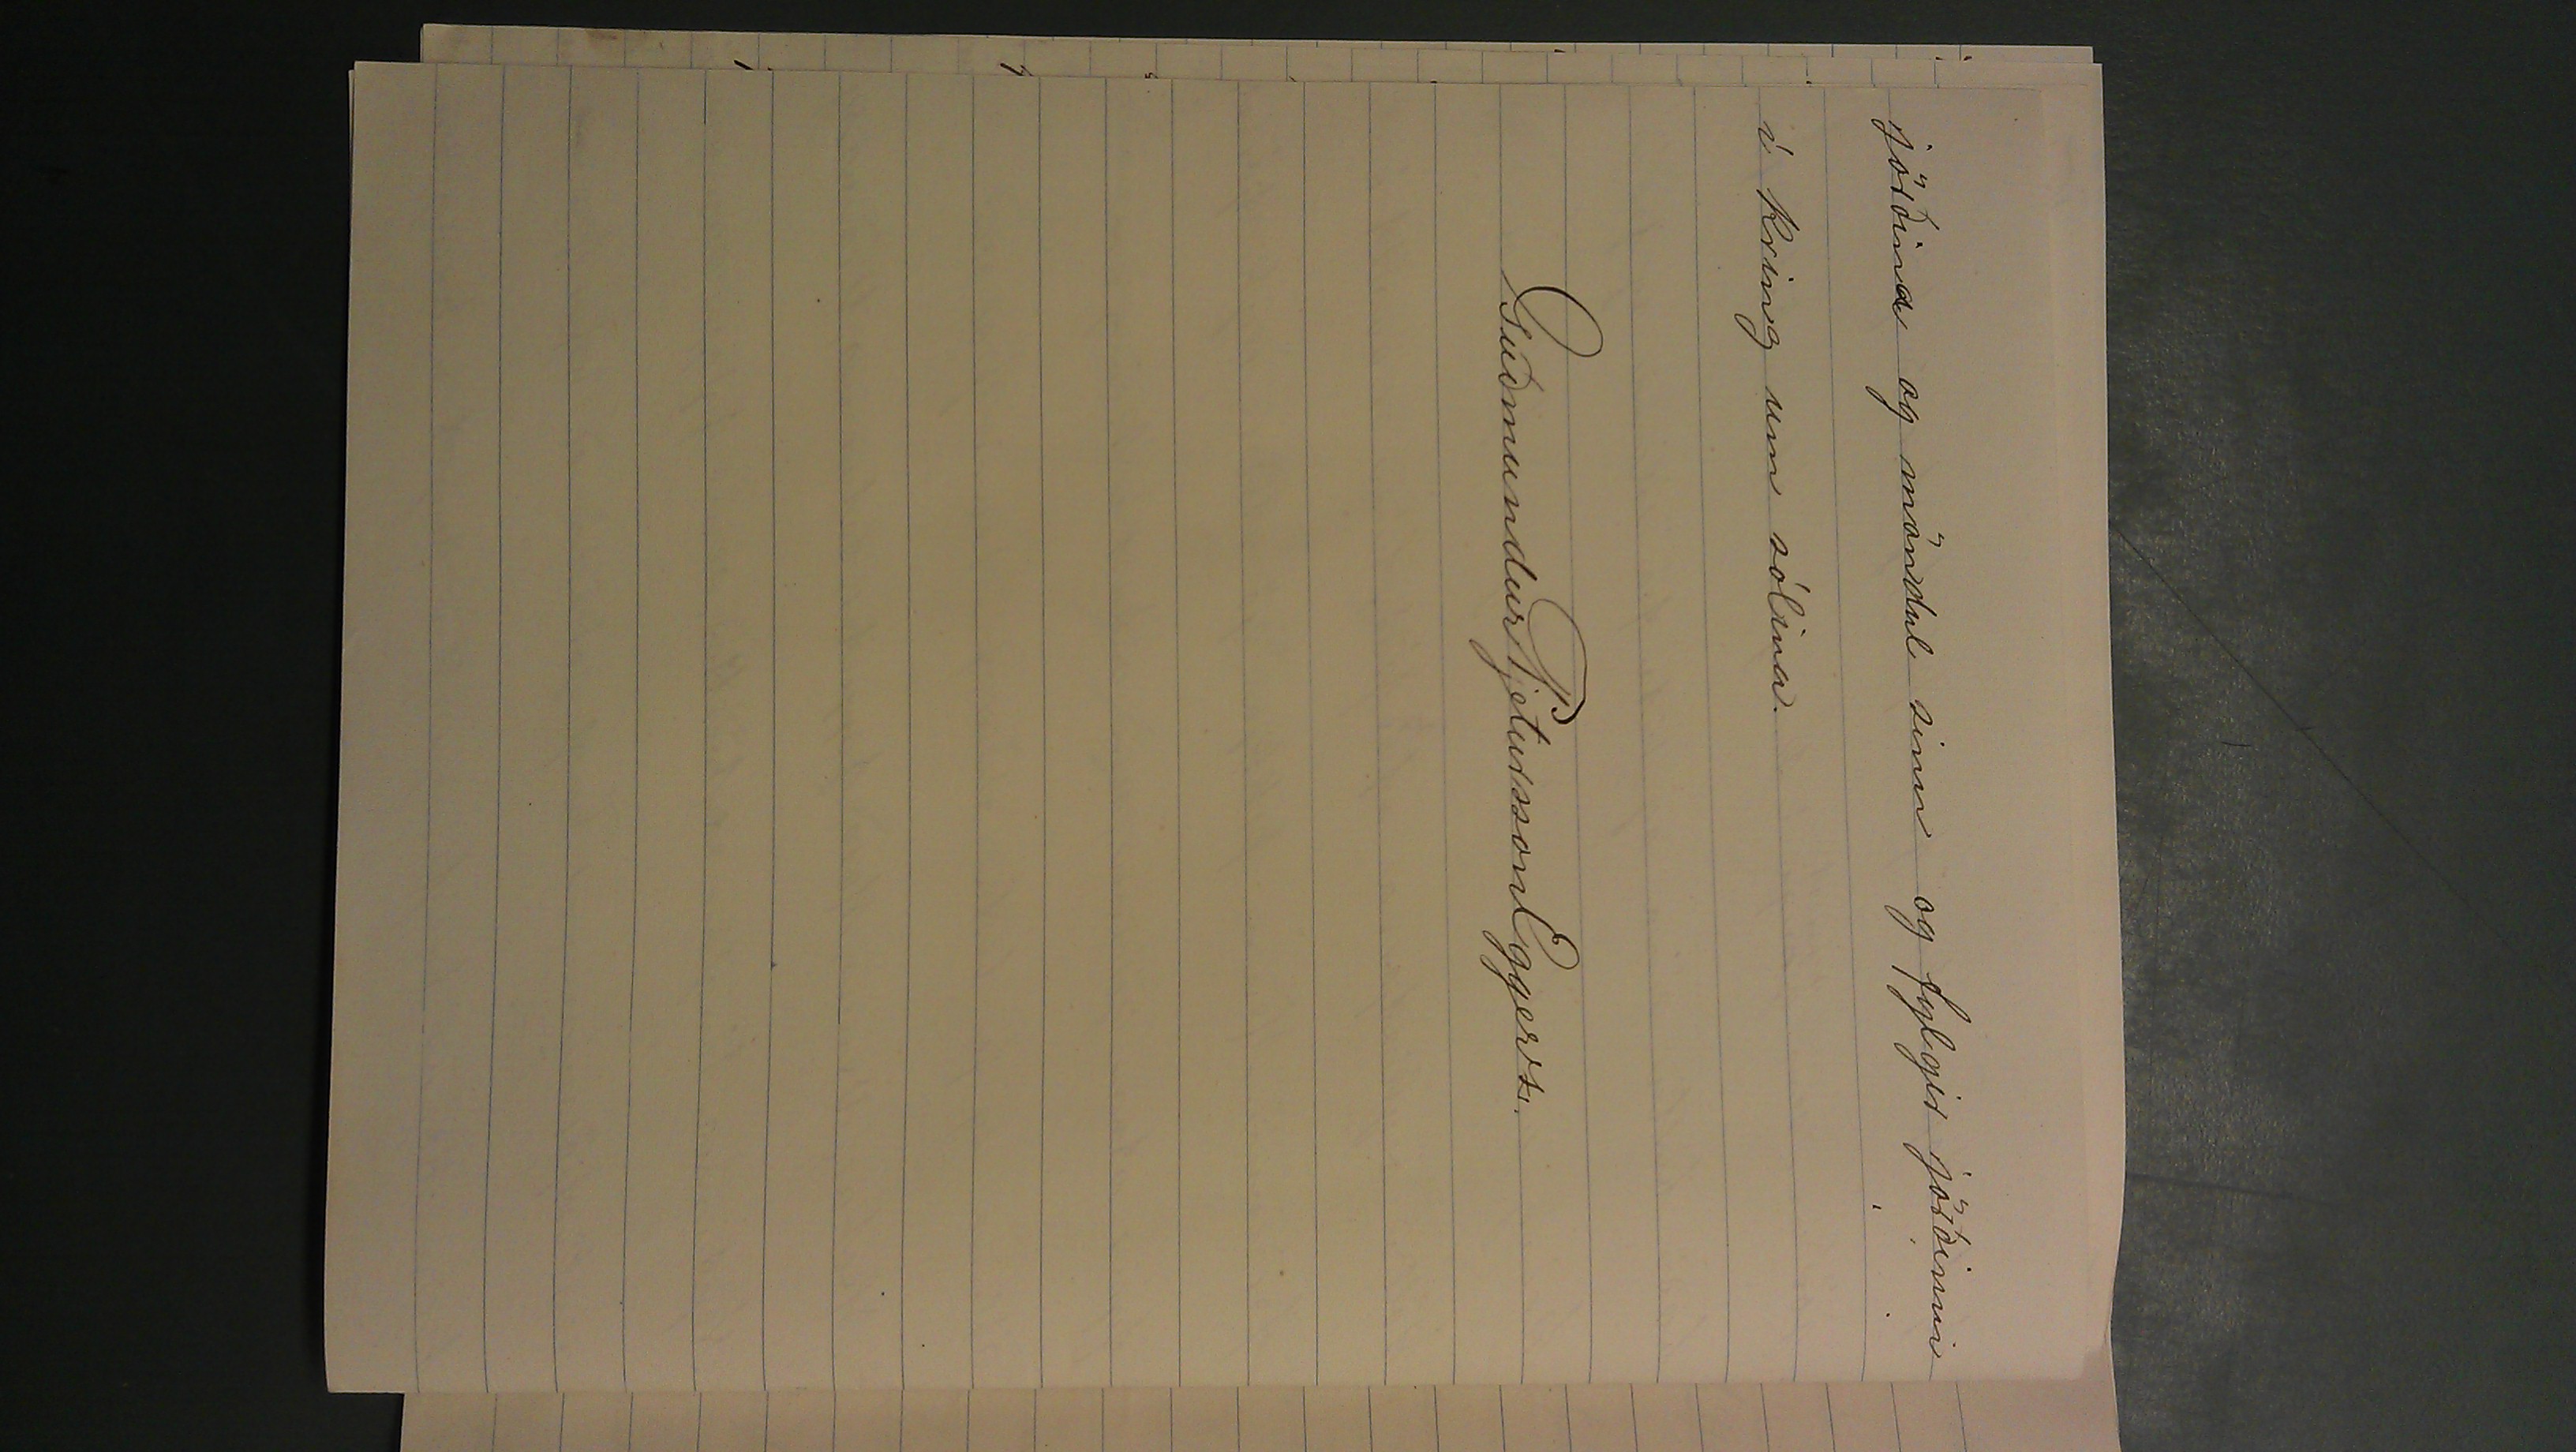 jörðina og möndul sinn og fylgir jörðinni
í kring um sólina.
Guðmundur Pjetursson Eggerz.